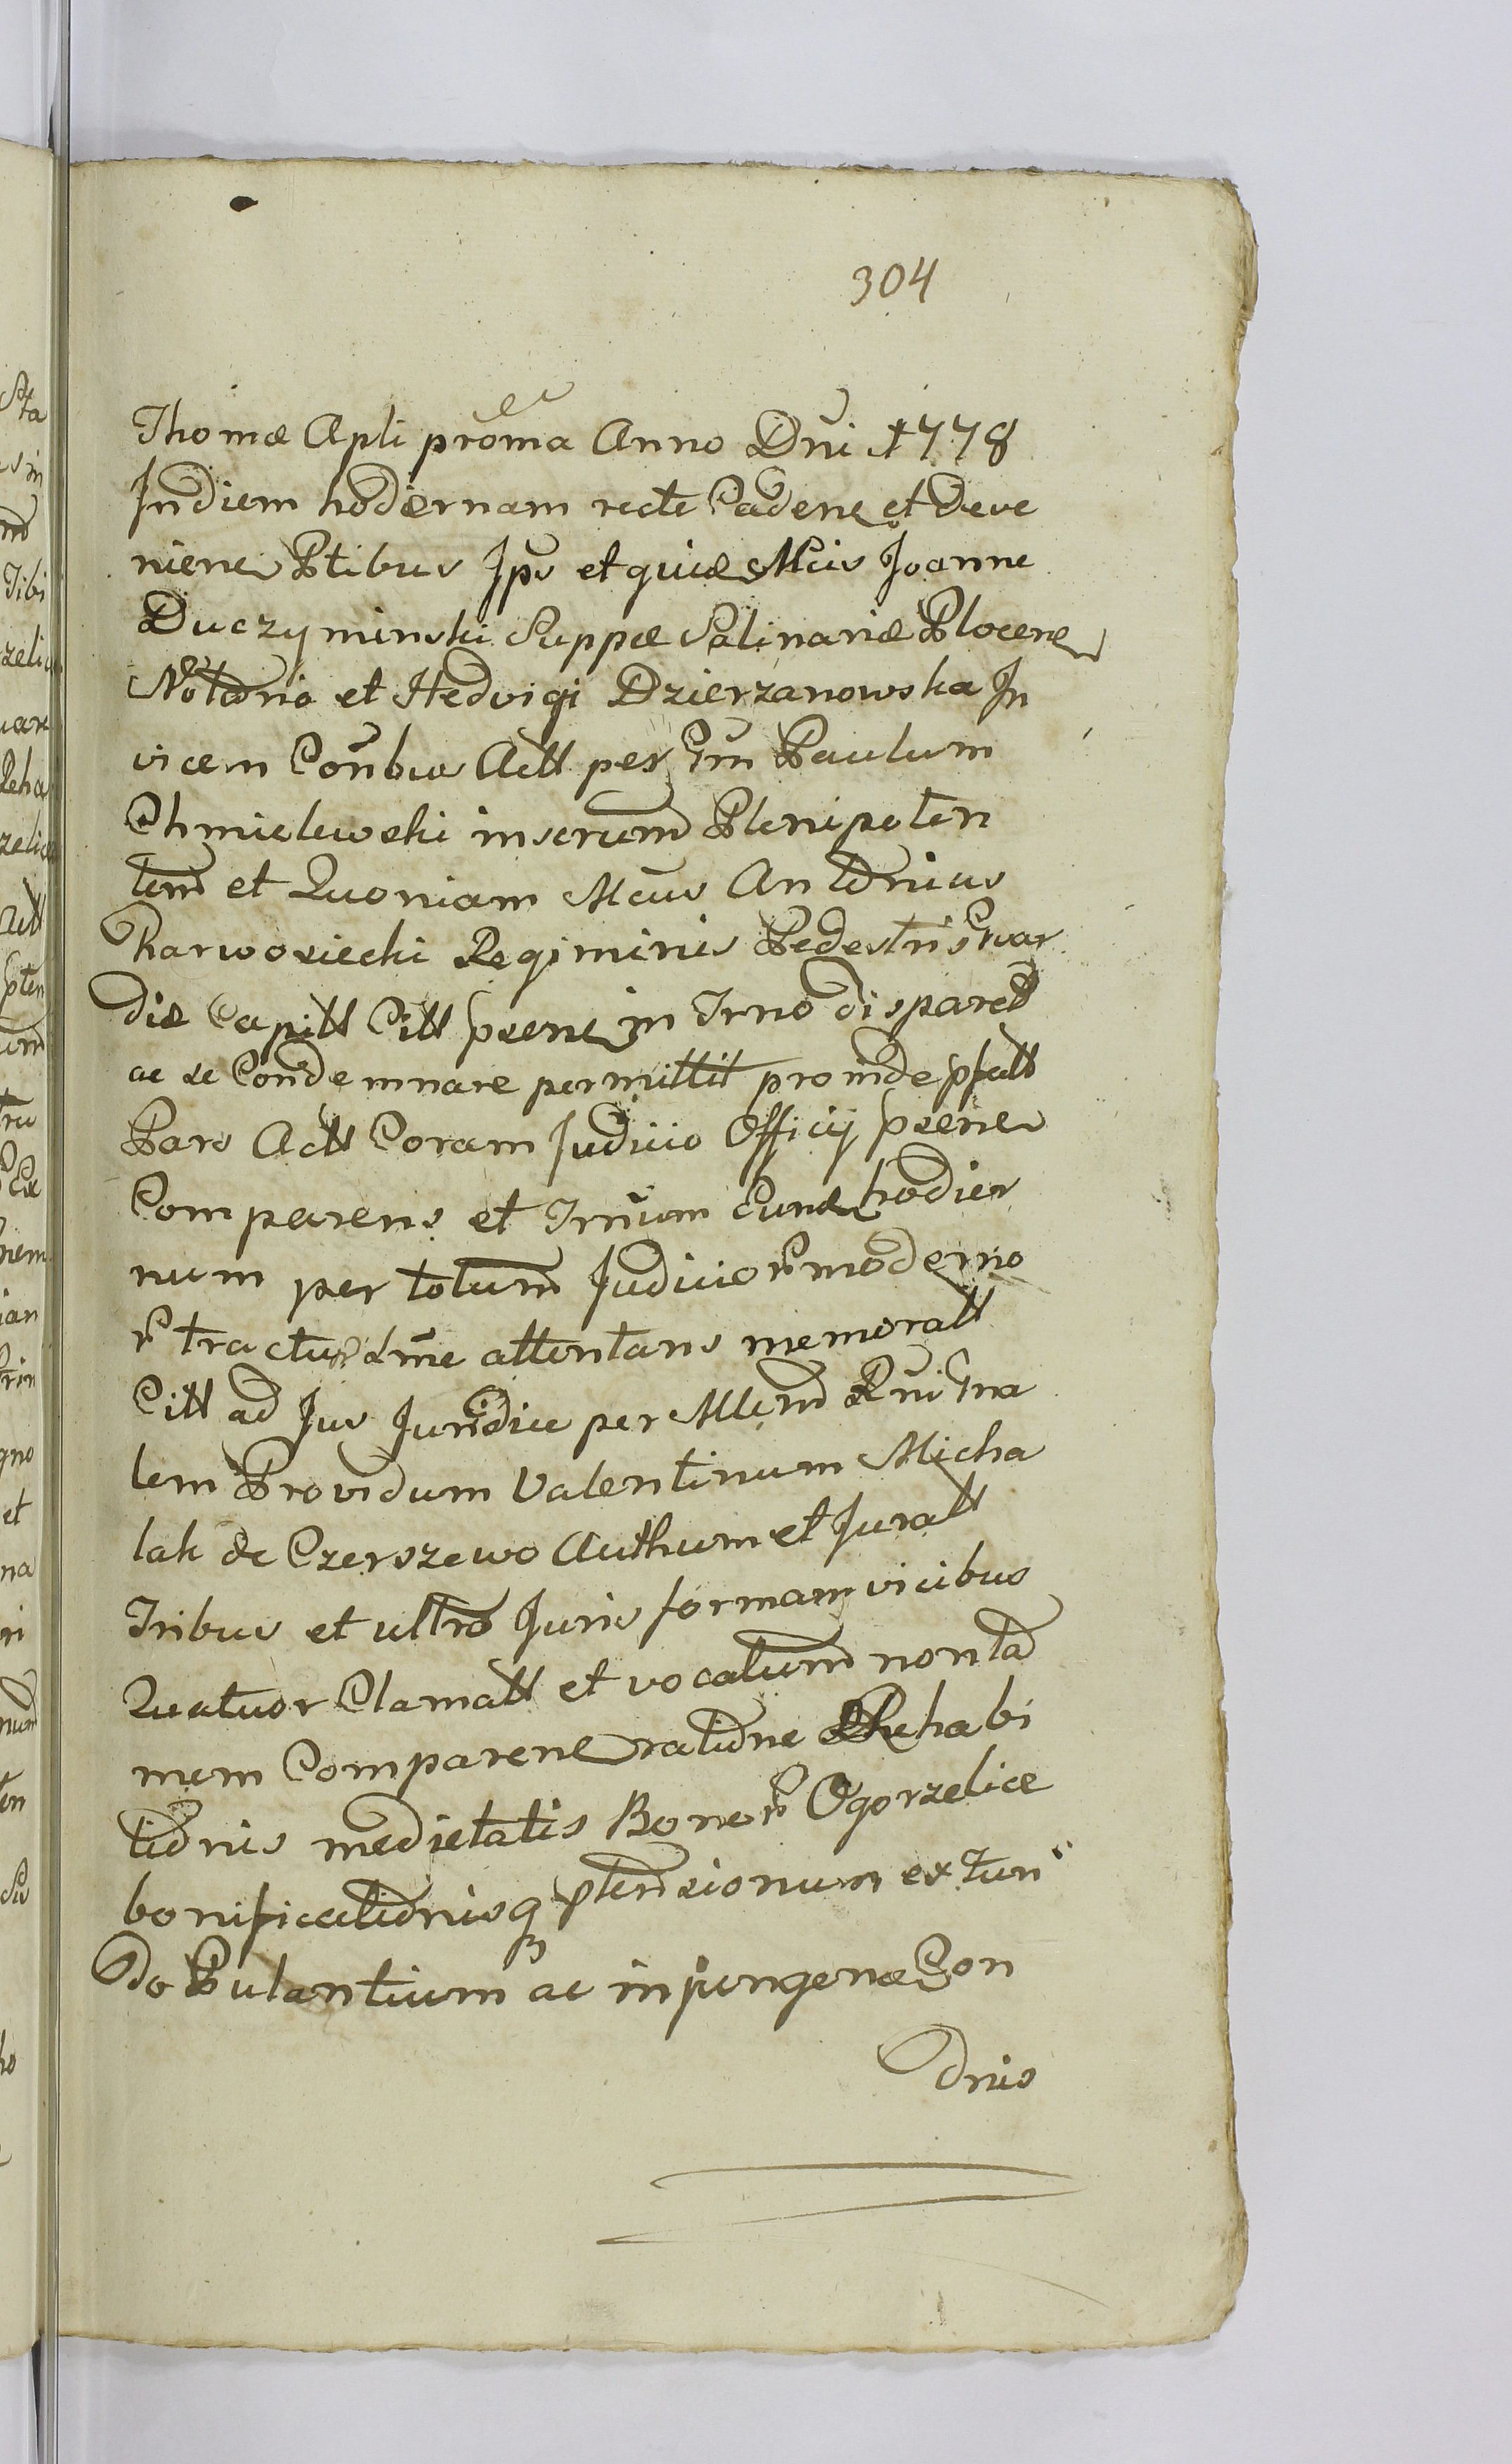 304
Thomæ Apli proma Anno Dni 1778
Indiem hodiernam recte Cadene et Deve
niene Ptibus Ips et quid Mcis Joanne
Duczyminski Suppæ Salinariæ Plocene
Notario et Hedvigi Dzierzanowska In
vicem Conbus Actt per Gm Paulum
Chmielewski inserum Plenipoten
tem et Quoniam Mcus Antonius
Karwosiecki Regiminis Pedestris Gwar
diæ Capitt Citt psene in Trno disparet
ac se Condemnare permittit proinde pfatt
Pars Actt Coram Judicio Officij psene
Comparens et Trnum Eund hodier
num per totum Judicior moderno
r tractum attentans memoratt
Citt ad Jus Juridice per Mlem Rni Gna
lem Providum Valentinum Micha
lak de Czerszewo Authum et Juratt
Tribus et ultro Juris formam vicibus
Quatuor Clamatt et vocatum non ta
mem Comparene ratione Rehabi
tionis medietatis Bonor Ogorzelice
bonificationisq ptensionum ex Jun
do Putantium ac injungene Con
dnis